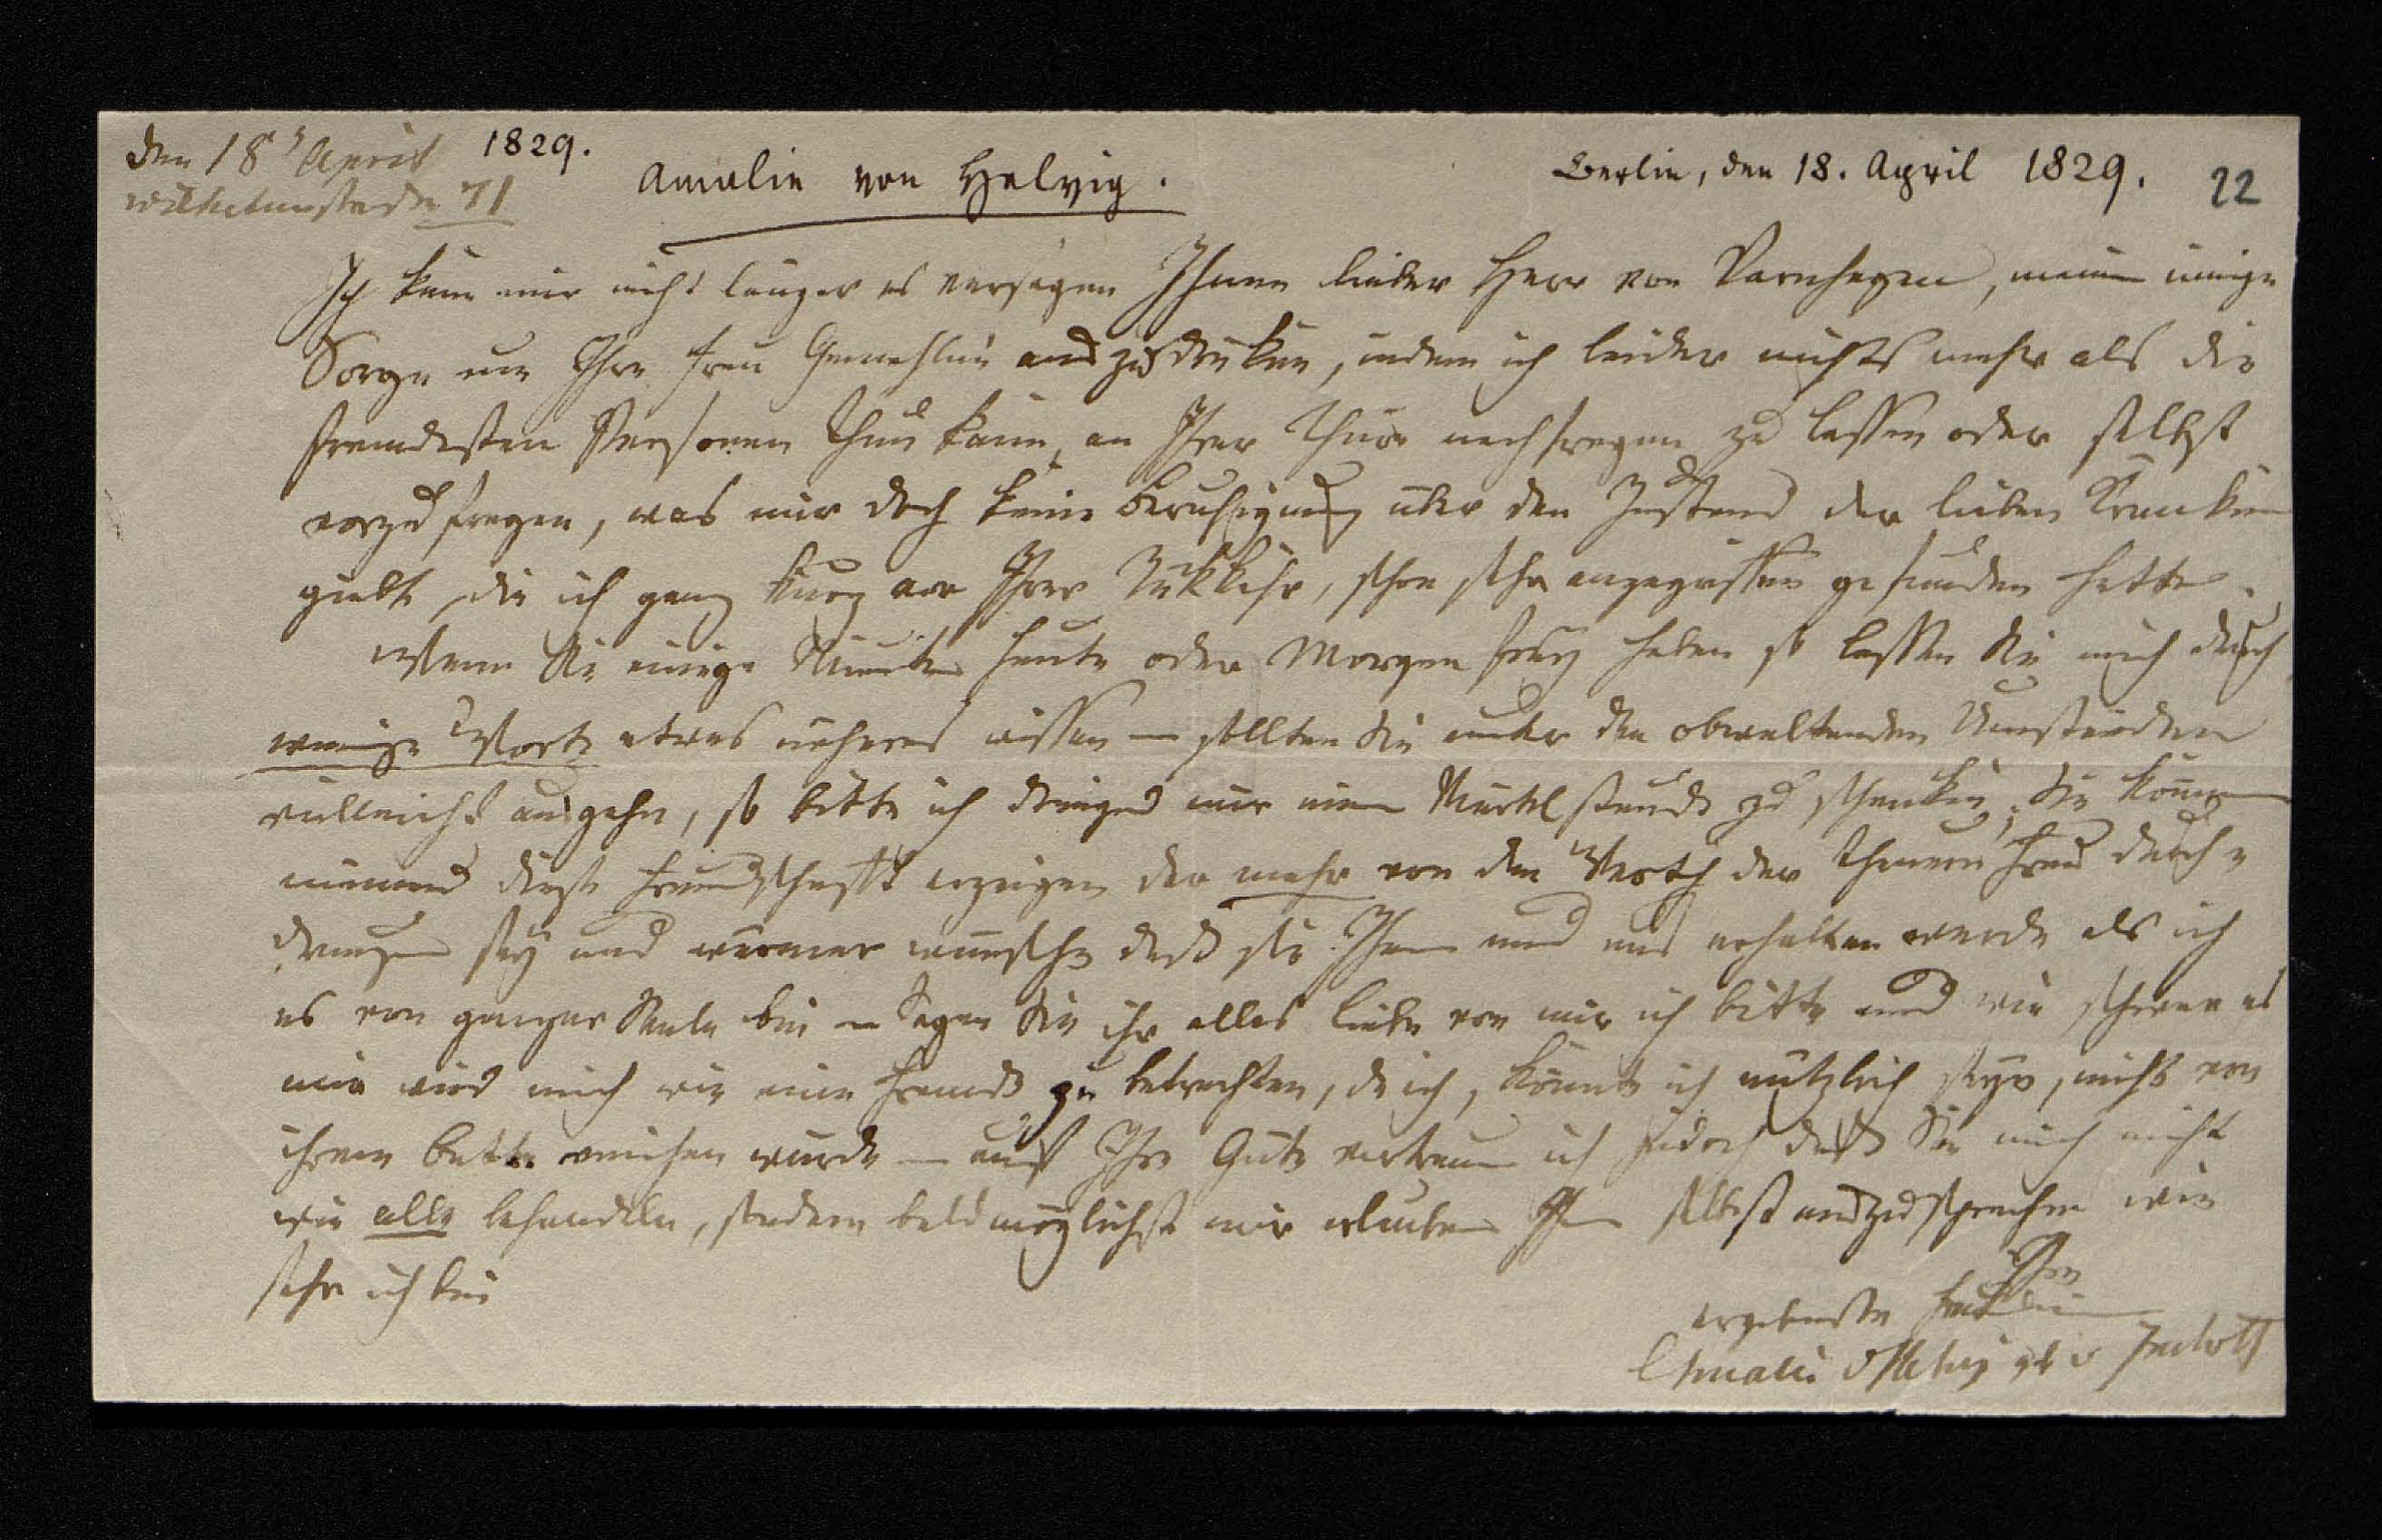 den 18t April 1829.
Wilhelmstraße 71
Amalie von Helvig.
Berlin, den 18. April 1829.
22
Ich kann mir nicht länger es versagen Ihnen lieber Herr von Varnhagen, meine innige
Sorge um Ihre Frau Gemahlin auszudrüken, indem ich leider nichts mehr als die
fremdesten Personen thun kann, an Ihrer Thüre nachfragen zu lassen oder selbst
vorzufragen, was mir doch keine Beruhigung über den Zustand der lieben Kranken
giebt, die ich ganz kurz vor Ihrer Rükkehr, schon sehr angegriffen gefunden hatte.
Wenn Sie einige Minuten heute oder Morgen frey haben so lassen Sie mich durch
wenige Worte etwas näheres wissen – sollten Sie unter den obwaltenden Umständen
vielleicht ausgehn, so bitte ich dringend mir eine Viertelstunde zu schenken, Sie können
niemand diese Freundschafft erzeigen der mehr von dem Werth der theuern Frau durch-
drungen sey und wärmer wünsche daß sie Ihnen und uns erhalten werde als ich
es von ganzer Seele bin – Sagen Sie ihr alles liebe von mir ich bitte und wie schwer es
mir wird mich wie eine Fremde zu betrachten, da ich, könnte ich nützlich seyn, nicht von
ihrem Bette weichen würde – auf Ihre Güte vertraue ich jedoch daß Sie mich nicht
wie alle behandeln, sondern baldmöglichst mir erlauben Ihnen selbst auszusprechen wie
sehr ich bin
Ihre
ergebenste Freundin
Amalie v Helvig geb v Imhoff